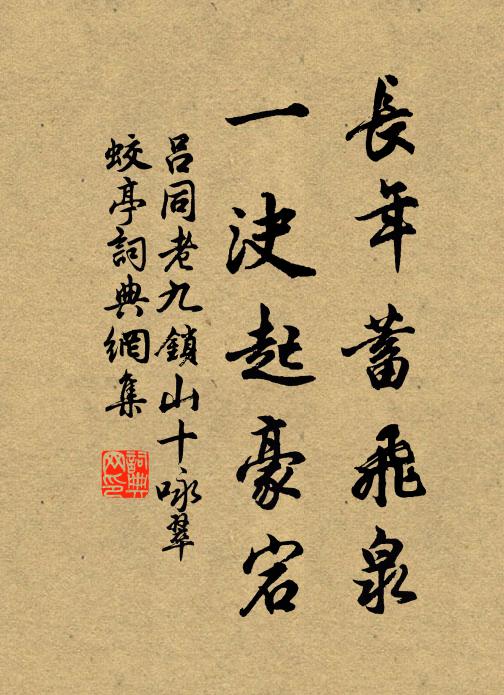 長年蓄飛泉
一決起豪宕
呂同老九鎖山十咏翠
蛟亭詞典網集
詞典
网印